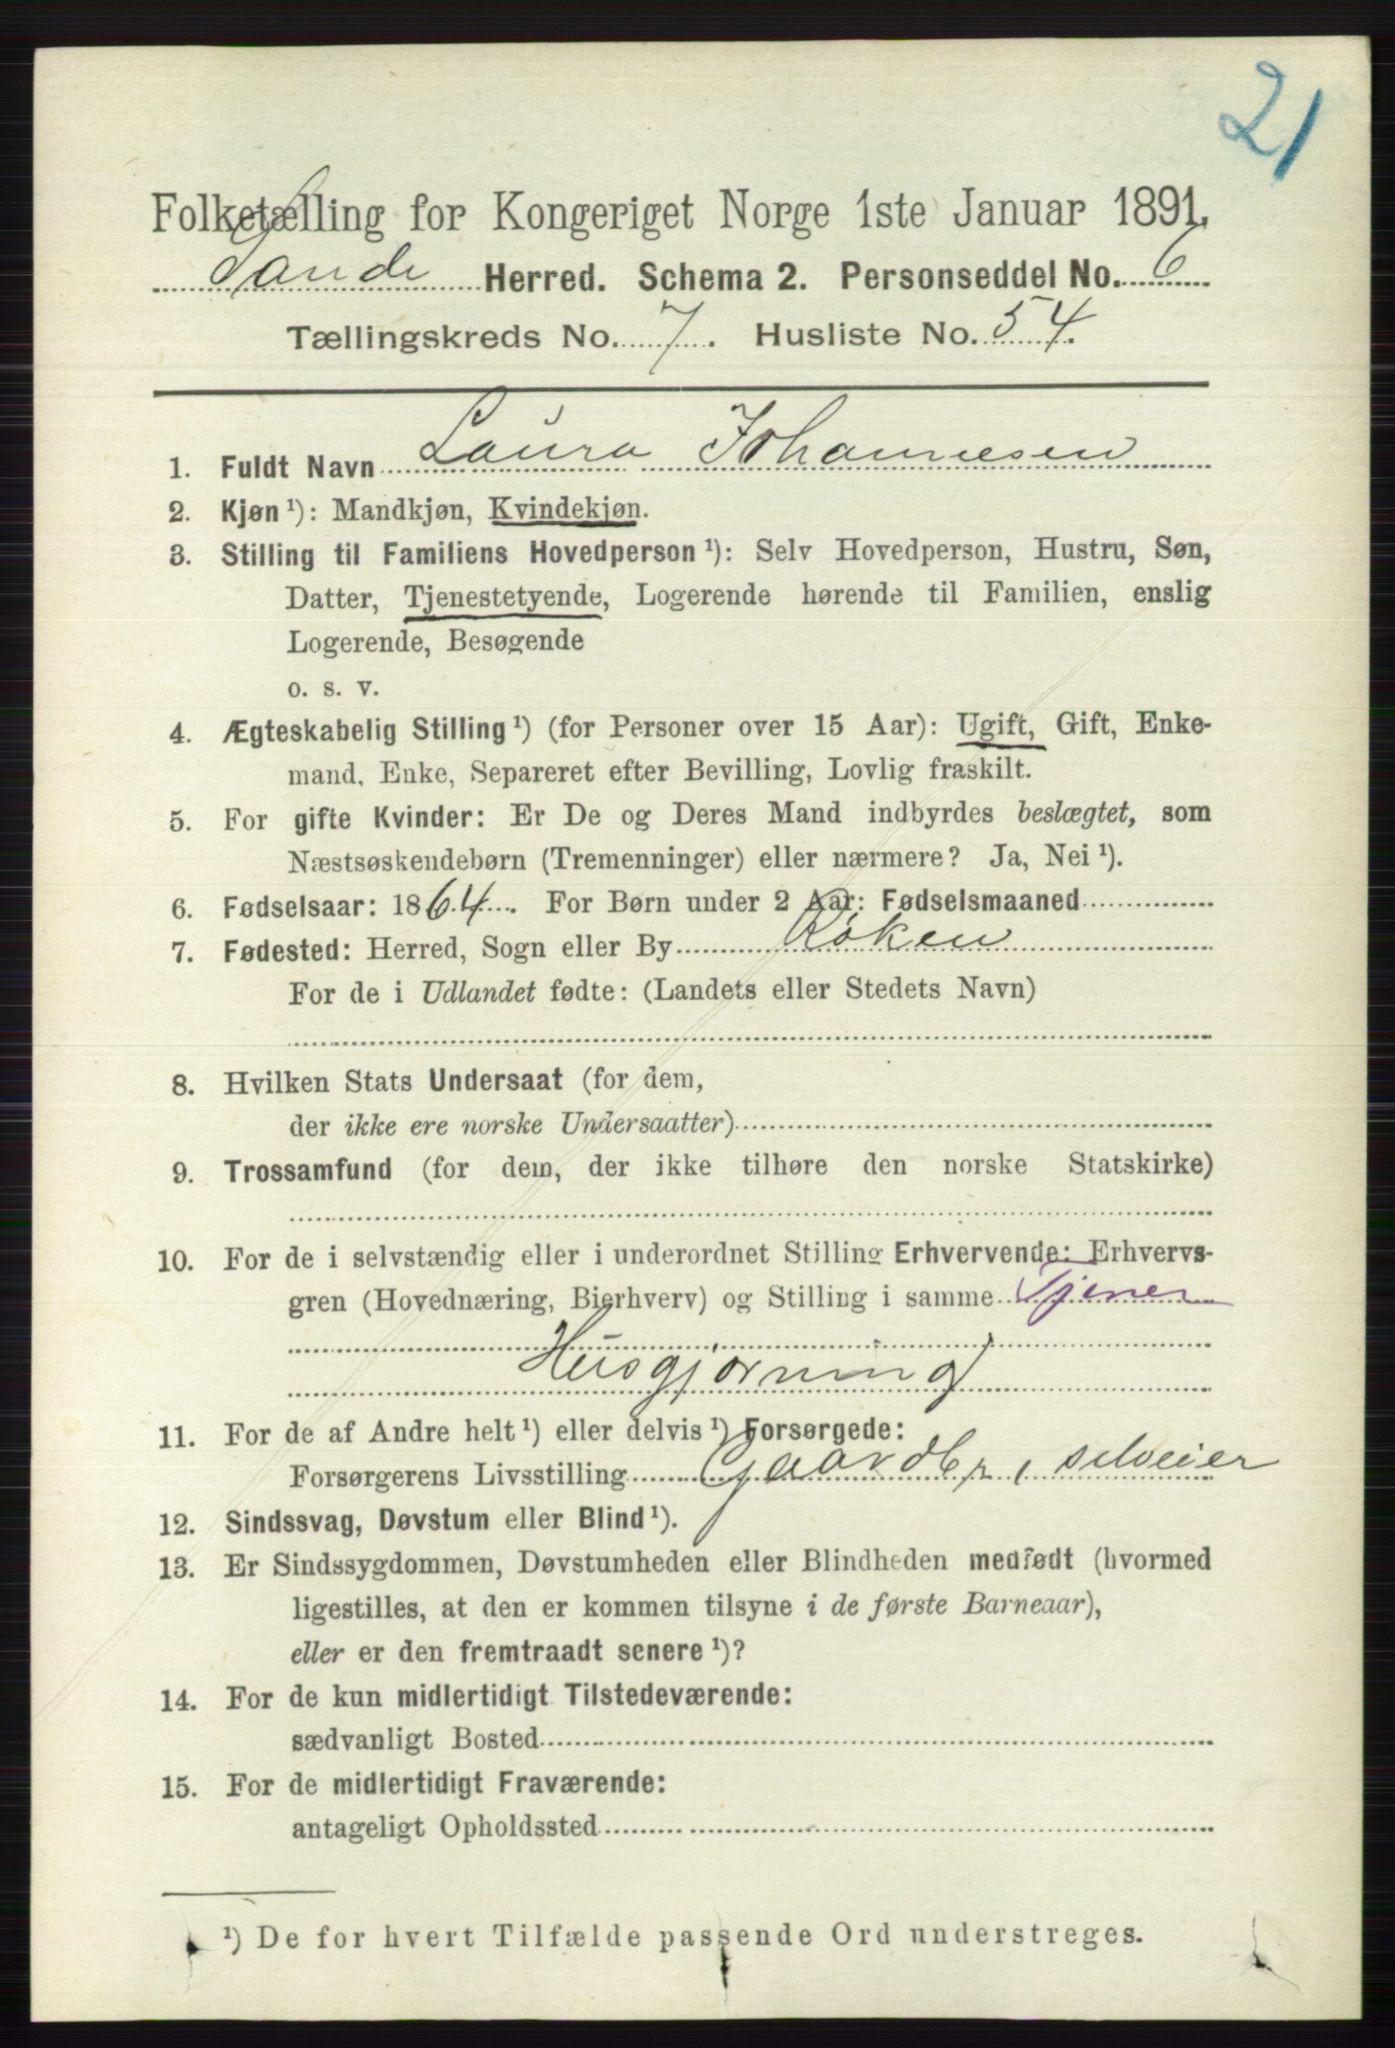 21
Folketælling for Kongeriget Norge 1ste Januar 1891.
Sande Herred. Schema 2. Personseddel No. 6
Tællingskreds No. 7. Husliste No. 54.
1. Fuldt Navn Laura Johannesen
2. Kjøn ¹): Mandkjøn, Kvindekjøn.
3. Stilling til Familiens Hovedperson ¹): Selv Hovedperson, Hustru, Søn,
Datter, Tjenestetyende, Logerende hørende til Familien, enslig
Logerende, Besøgende
o. s. v.
4. Ægteskabelig Stilling ¹) (for Personer over 15 Aar): Ugift, Gift, Enke-
mand, Enke, Separeret efter Bevilling, Lovlig fraskilt.
5. For gifte Kvinder: Er De og Deres Mand indbyrdes beslægtet, som
Næstsøskendebørn (Tremenninger) eller nærmere? Ja, Nei ¹).
6. Fødselsaar: 1864. For Børn under 2 Aar: Fødselsmaaned
7. Fødested: Herred, Sogn eller By Røken
For de i Udlandet fødte: (Landets eller Stedets Navn)
8. Hvilken Stats Undersaat (for dem,
der ikke ere norske Undersaatter)
9. Trossamfund (for dem, der ikke tilhøre den norske Statskirke)
10. For de i selvstændig eller i underordnet Stilling Erhvervende: Erhvervs-
gren (Hovednæring, Bierhverv) og Stilling i samme Tjener
Husgjørning
11. For de af Andre helt ¹) eller delvis ¹) Forsørgede:
Forsørgerens Livsstilling Gaardbr, selveier
12. Sindssvag, Døvstum eller Blind ¹).
13. Er Sindssygdommen, Døvstumheden eller Blindheden medfødt (hvormed
ligestilles, at den er kommen tilsyne i de første Barneaar),
eller er den fremtraadt senere ¹)?
14. For de kun midlertidigt Tilstedeværende:
sædvanligt Bosted
15. For de midlertidigt Fraværende:
antageligt Opholdssted
¹) De for hvert Tilfælde passende Ord understreges.